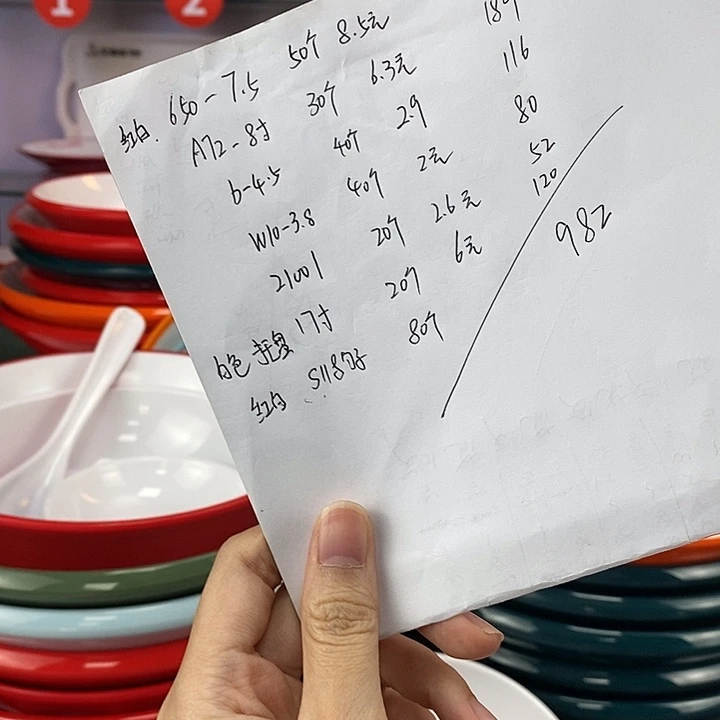 1 2
红白. 650-7.5 50个 8.5元
A72-8寸 30个 6.3元 189
b-4.5 40个 2.9 116
W10-3.8 40个 2元 80
21001 20个 2.6元 52
白色 托盘 17寸 20个 6元 120
红白 S118勺子 80个
982